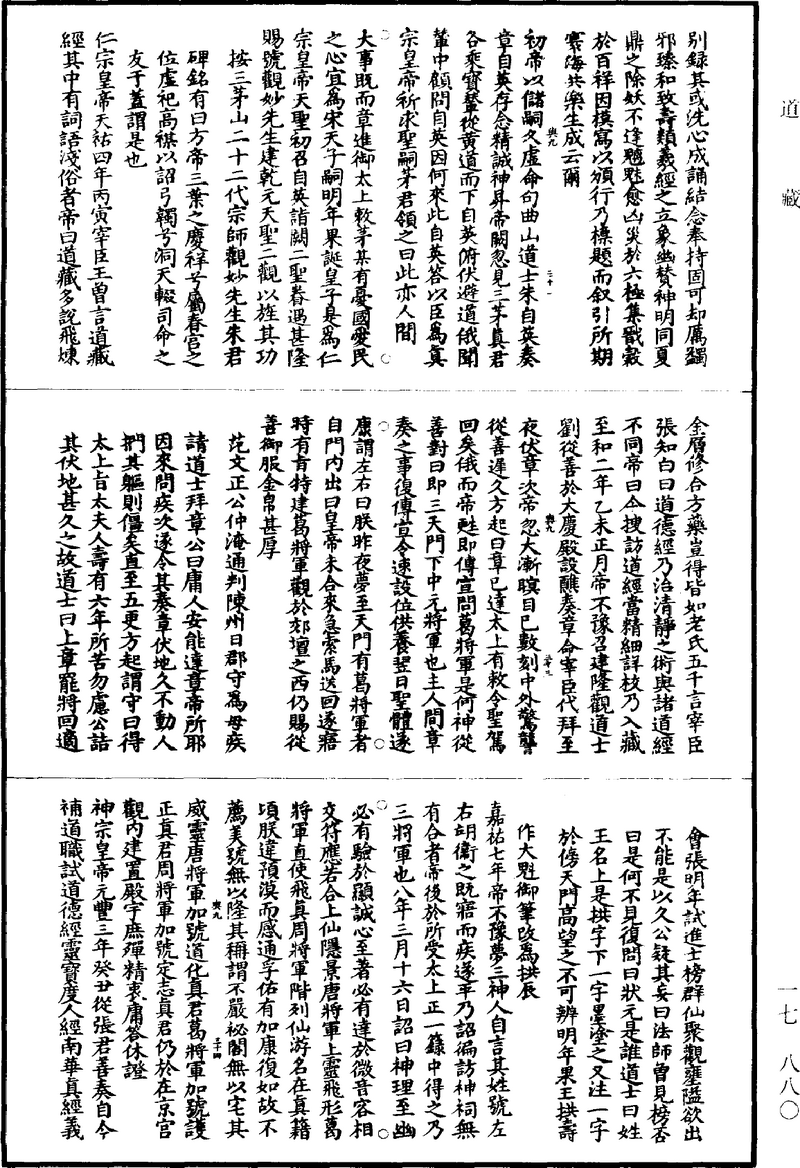 道藏
別錄其或洗心成誦結念奉持固可却厲蠲
邪臻和致壽類羲經之立象幽贊神明同夏
鼎之除妖不逢魑魅愈凶災於六極集戩穀
於百祥因模寫以頒行乃標題而叙引所期
寰海共樂生成云爾
初帝以儲嗣久虛命句曲山道士朱自英奏
章自英存念精誠神昇帝闕忽見三茅真君
各乘寶輦從黃道而下自英俯伏避道俄聞
輦中顧問自英因何來此自英答以臣爲真
宗皇帝祈求聖嗣茅君領之曰此亦人間
大事既而章進御太上敕茅某有憂國愛民
之心宜爲宋天子嗣明年果誕皇子是爲仁
宗皇帝天聖初召自英詣闕二聖眷遇甚隆
賜號觀妙先生建乾元天聖二觀以旌其功
按三茅山二十二代宗師觀妙先生朱君
碑銘有曰方帝三葉之慶祥兮屬春宮之
位虛祀高禖以詔弓韣兮洞天輟司命之
友于蓋謂是也
仁宗皇帝天祐四年丙寅宰臣王曾言道藏
經其中有詞語淺俗者帝曰道藏多說飛煉
金層修合方藥豈得皆如老氏五千言宰臣
張知白曰道德經乃治清靜之術與諸道經
不同帝曰今搜訪道經當精細詳校乃入藏
至和二年乙未正月帝不豫召建隆觀道士
劉從善於大慶殿設醮奏章命宰臣代拜至
夜伏章次帝忽大漸瞑目已數刻中外驚讋
從善遲久方起曰章已達太上有敕令聖駕
回矣俄而帝甦即傳宣問葛將軍是何神從
善對曰即三天門下中元將軍也主人間章
奏之事復傳宣令速設位供養翌日聖體遂
康謂左右曰朕昨夜夢至天門有葛將軍者
自門內出曰皇帝未合來急索馬送回遂寤
時有旨特建葛將軍觀於郊壇之西仍賜從
善御服金帛甚厚
范文正公仲淹通判陳州日郡守爲母疾
請道士拜章公曰庸人安能達章帝所耶
因來問疾次遂令其奏章伏地久不動人
捫其軀則僵矣直至五更方起謂守曰得
太上旨太夫人壽有六年所苦勿慮公詰
其伏地甚久之故道士曰上章罷將回適
會張明年試進士榜群仙聚觀壅隘欲出
不能是以久公疑其妄曰法師曾見榜否
曰是何不見復問曰狀元是誰道士曰姓
王名上是拱字下一字墨塗之又注一字
於傍天門高望之不可辨明年果王拱壽
作大魁御筆改爲拱辰
嘉祐七年帝不豫夢三神人自言其姓號左
右胡衞之既寤而疾遂平乃詔徧訪神祠無
有合者帝後於所受太上正一籙中得之乃
三將軍也八年三月十六日詔曰神理至幽
必有驗於顯誠心至著必有達於微音容相
交符應若合上仙隱景唐將軍上靈飛形葛
將軍直使飛真周將軍階列仙游名在真籍
頃朕違預漠而感通孚佑有加康復如故不
薦美號無以隆其稱謂不嚴祕閣無以宅其
威靈唐將軍加號道化真君葛將軍加號護
正真君周將軍加號定志真君仍於在京宮
觀內建置殿宇庶殫精衷庸答休證
神宗皇帝元豐三年癸丑從張君善奏自今
補道職試道德經靈寶度人經南華真經義
一七 八八〇